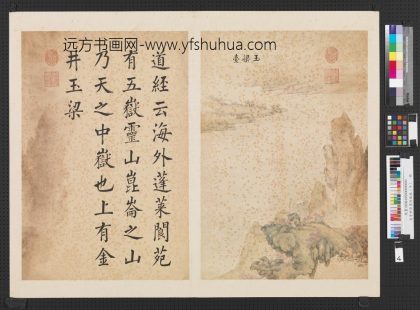 远方书画网-www.yfshuhua.com
玉梁臺
道經云海外蓬萊閬苑
有五嶽靈山崑崙之山
乃天之中嶽也上有金
井玉梁